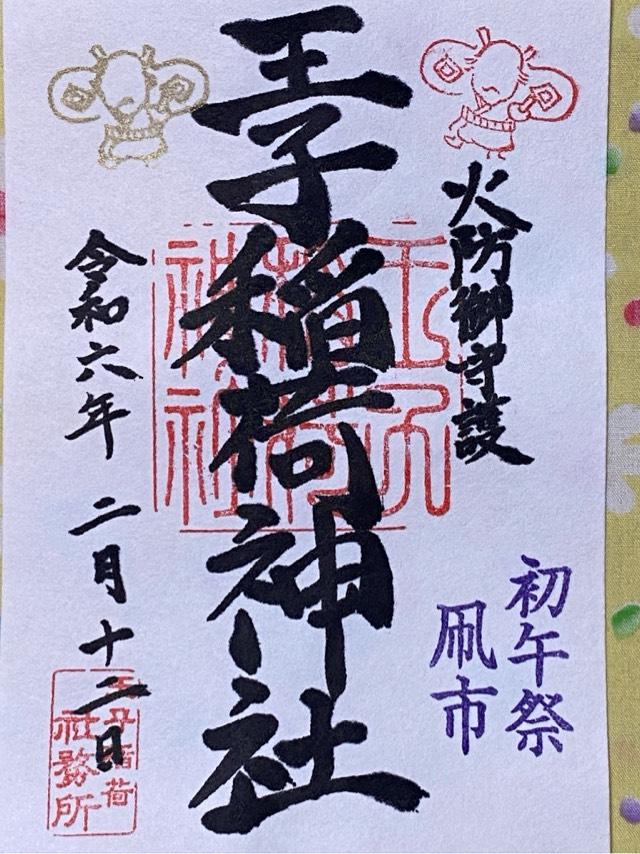 火防御守護
初午祭
凧市
王子稲荷神社
王子
稲荷
神社
令和六年 二月十二日
王子稲荷
社務所